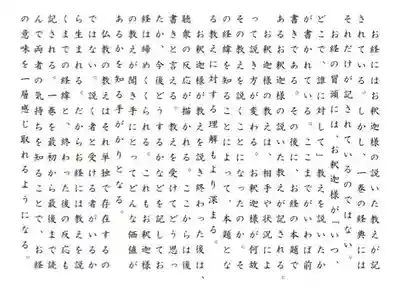 お経にはお釈迦様が説いた教えが記
されている。しかし、一巻の経典には
それだけが記されているのではない。
お経の冒頭には、お釈迦様が「いつ、
どこで、誰に対して」教えを説いたか
が書かれている。ここまでがいわば前
書きである。その後に、お経の本題で
あるお釈迦様の説いた教えが記される。
お釈迦様の教えは、相手や状況によ
って説き方が変わる。お釈迦様が何故
その教えを説くことになったのか。そ
の経緯を知ることによって、本題とな
る教えに対する理解もより深まる。
お釈迦様が教えを説き終わった後は、
聴衆の反応が描かれる。ここからは後
書きと言える。教えを受けてどう思っ
たか、今後どうするかなどを記してお
経は締めくくられる。これもお釈迦様
の教えが聞き手にとってどんな価値が
あるかを知る手がかりとなる。
仏教の教えはそれ単独で存在するの
ではない。説く者と受ける者がいるか
ら生まれる。だからお経には教えを説
くまでの経緯と、終わった後の反応も
記される。一巻を最初から最後まで読
んで両者の気持ちを知ることで、お経
の意味を一層感じ取れるようになる。